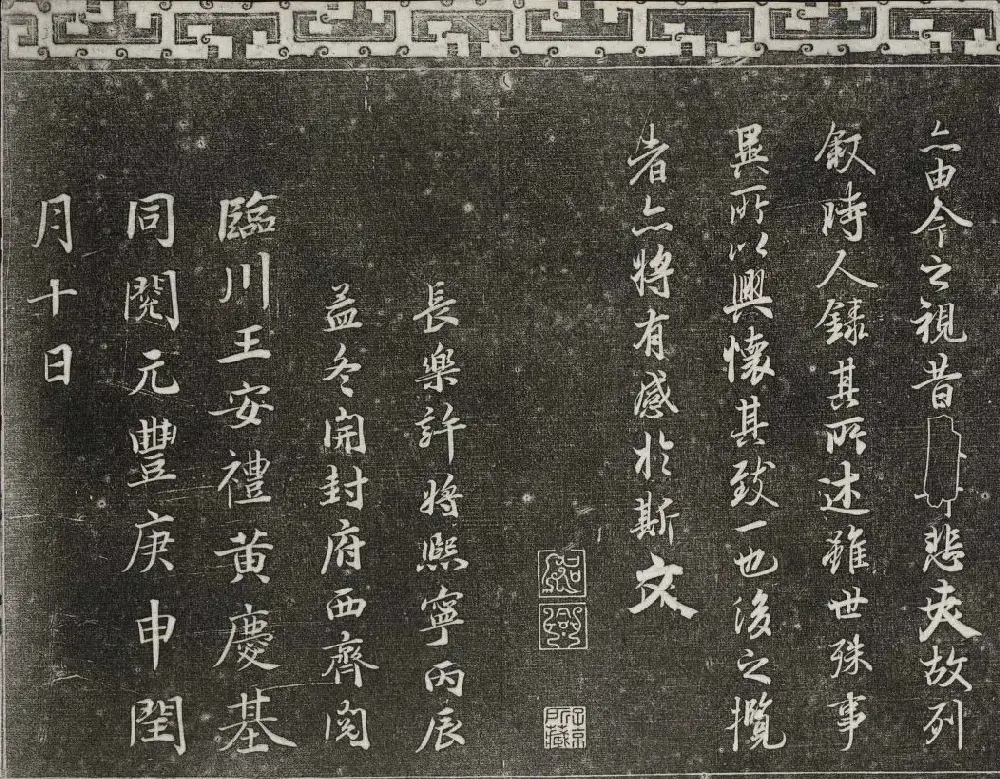 亦由今之視昔悲夫故列
叙時人錄其所述雖世殊事
異所以興懷其致一也後之攬
者亦將有感於斯文
長樂許將熙寧丙辰
孟冬開封府西齋閱
臨川王安禮黃慶基
同閱元豐庚申閏
月十日